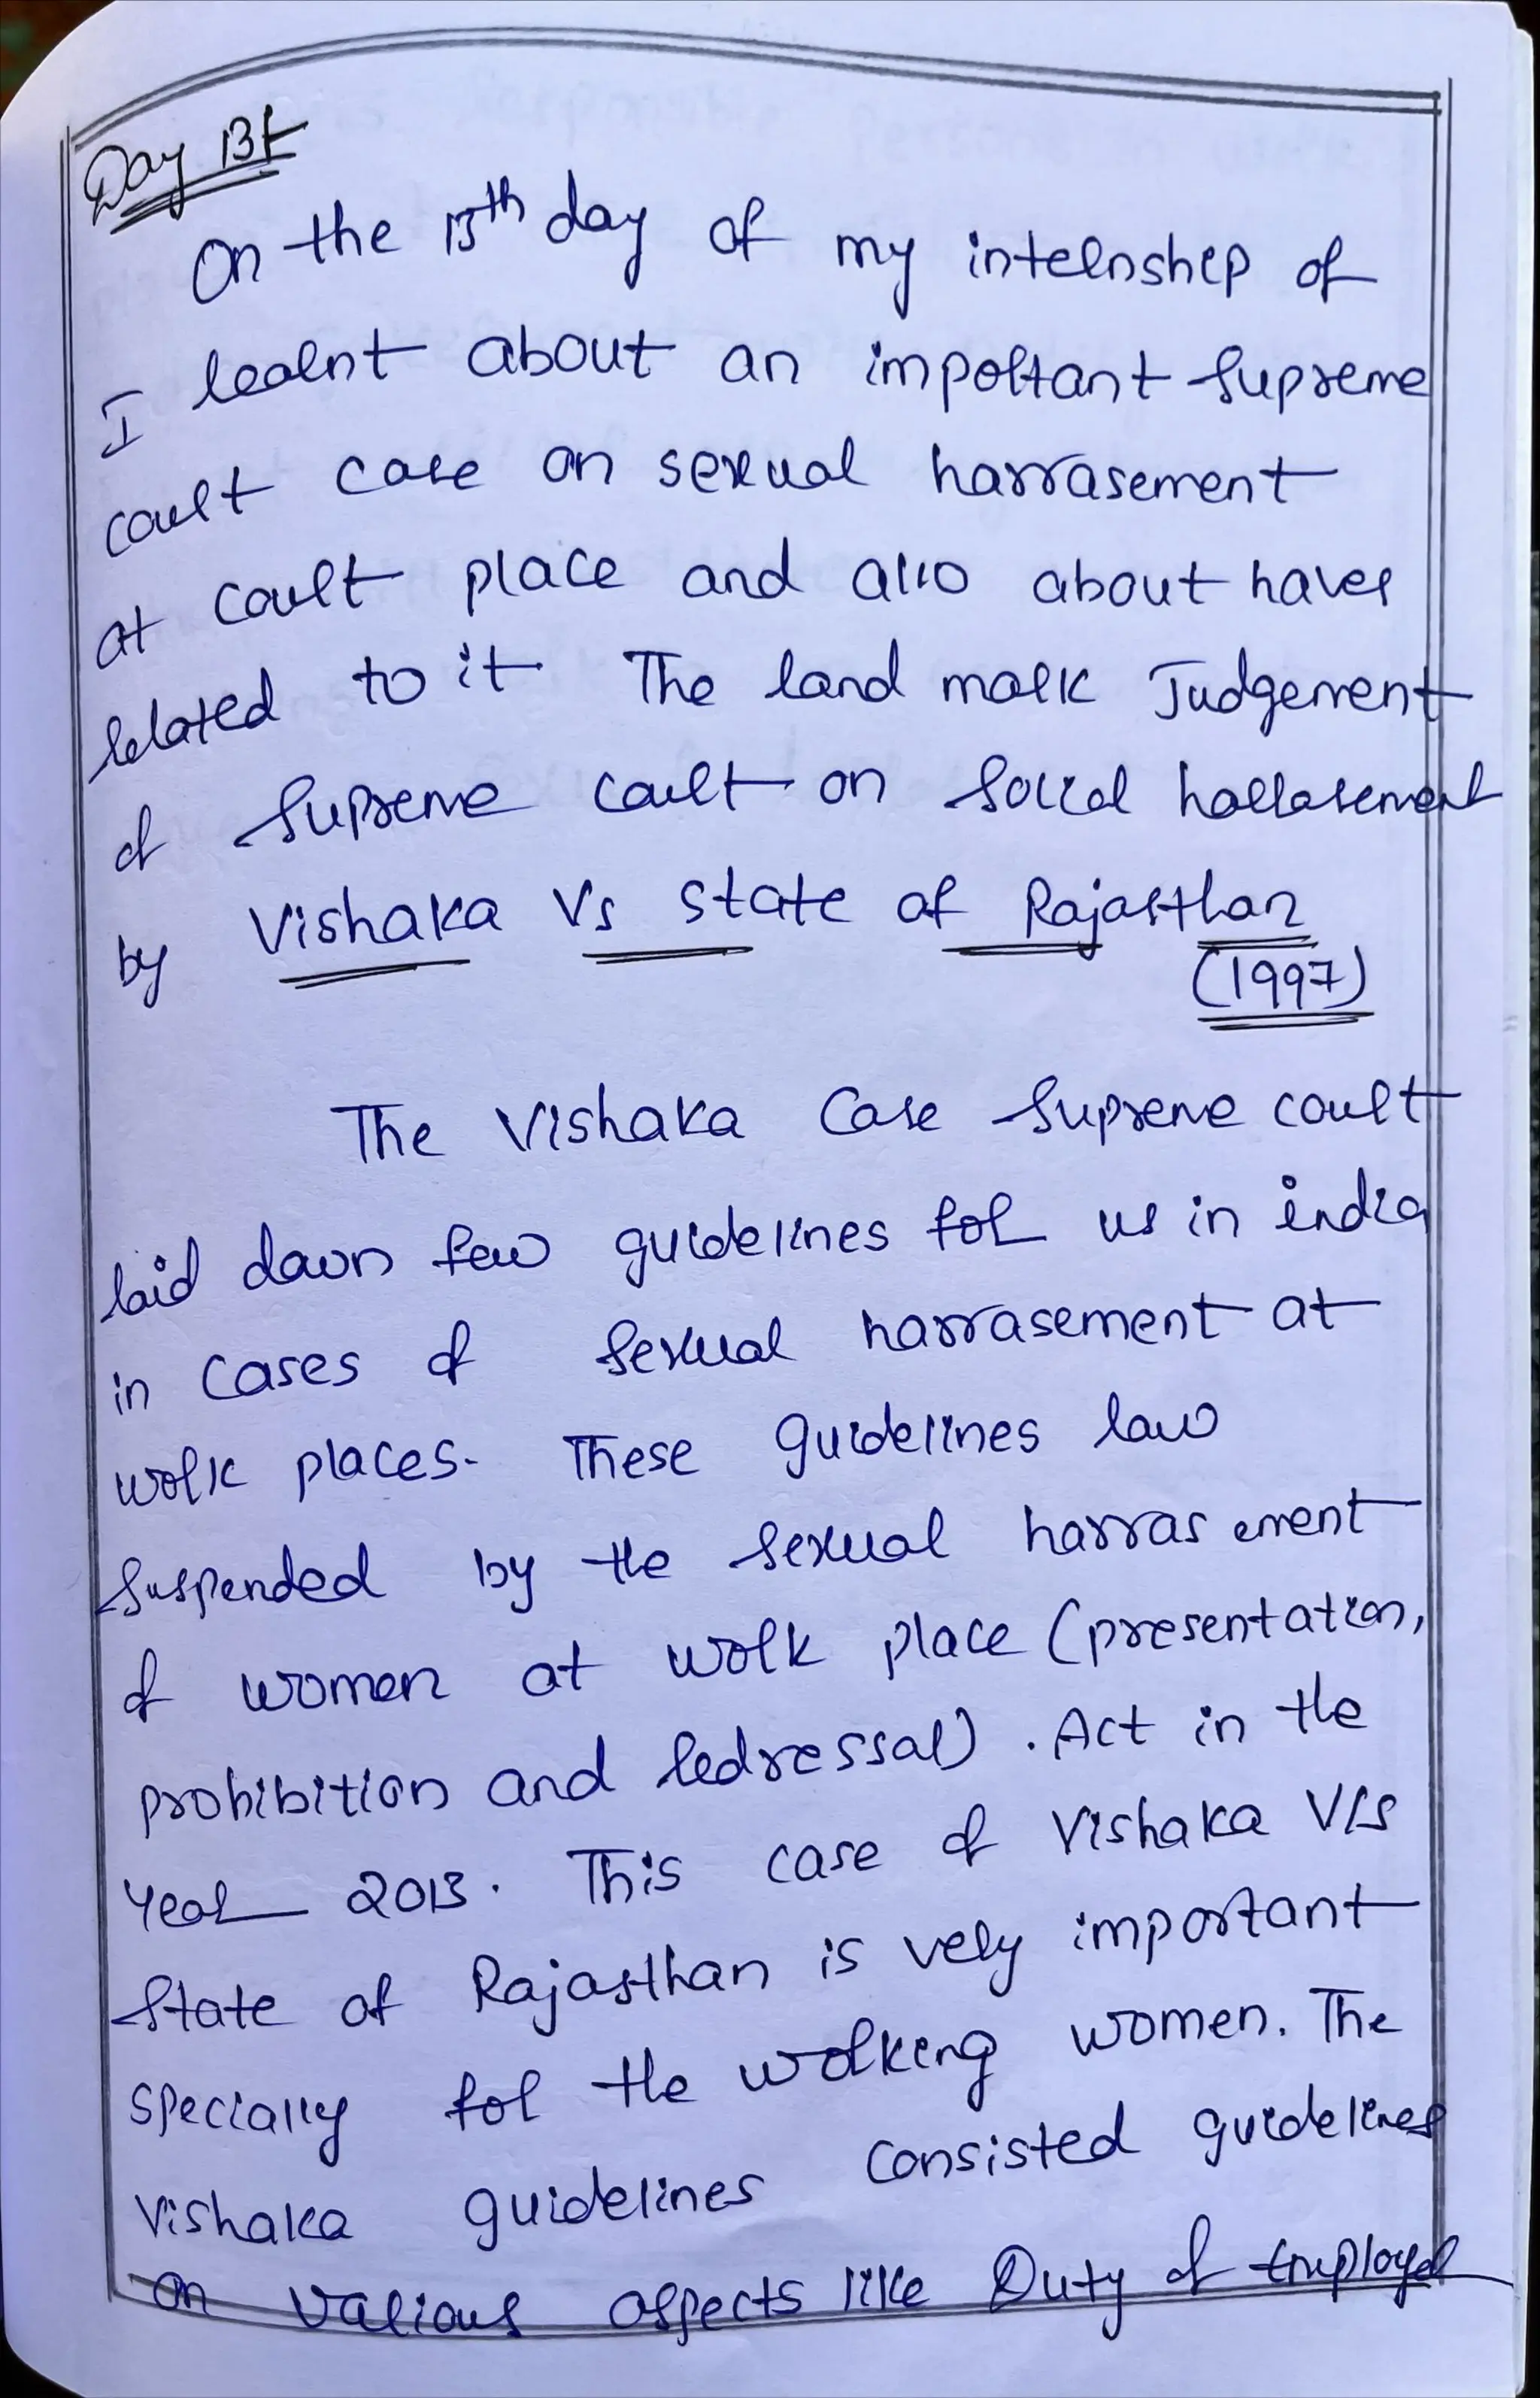 Day 13:
On the 13th day of my internship of
I learnt about an important Supreme
court case on sexual harrasement
at court place and also about haves
related to it The land mark Judgement
of Supreme court on Social harrasement
by Vishaka Vs state of Rajasthan
(1997)
The Vishaka Case Supreme court
laid down few guidelines for us in india
in cases of Sexual harrasement at
work places. These guidelines law
Suspended by the sexual harras ement
of women at work place (presentation,
prohibition and redressal). Act in the
Year 2013. This case of Vishaka V/s
State of Rajasthan is very important
specially for the working women. The
Vishaka guidelines consisted guidelines
on various aspects like Duty of Employer